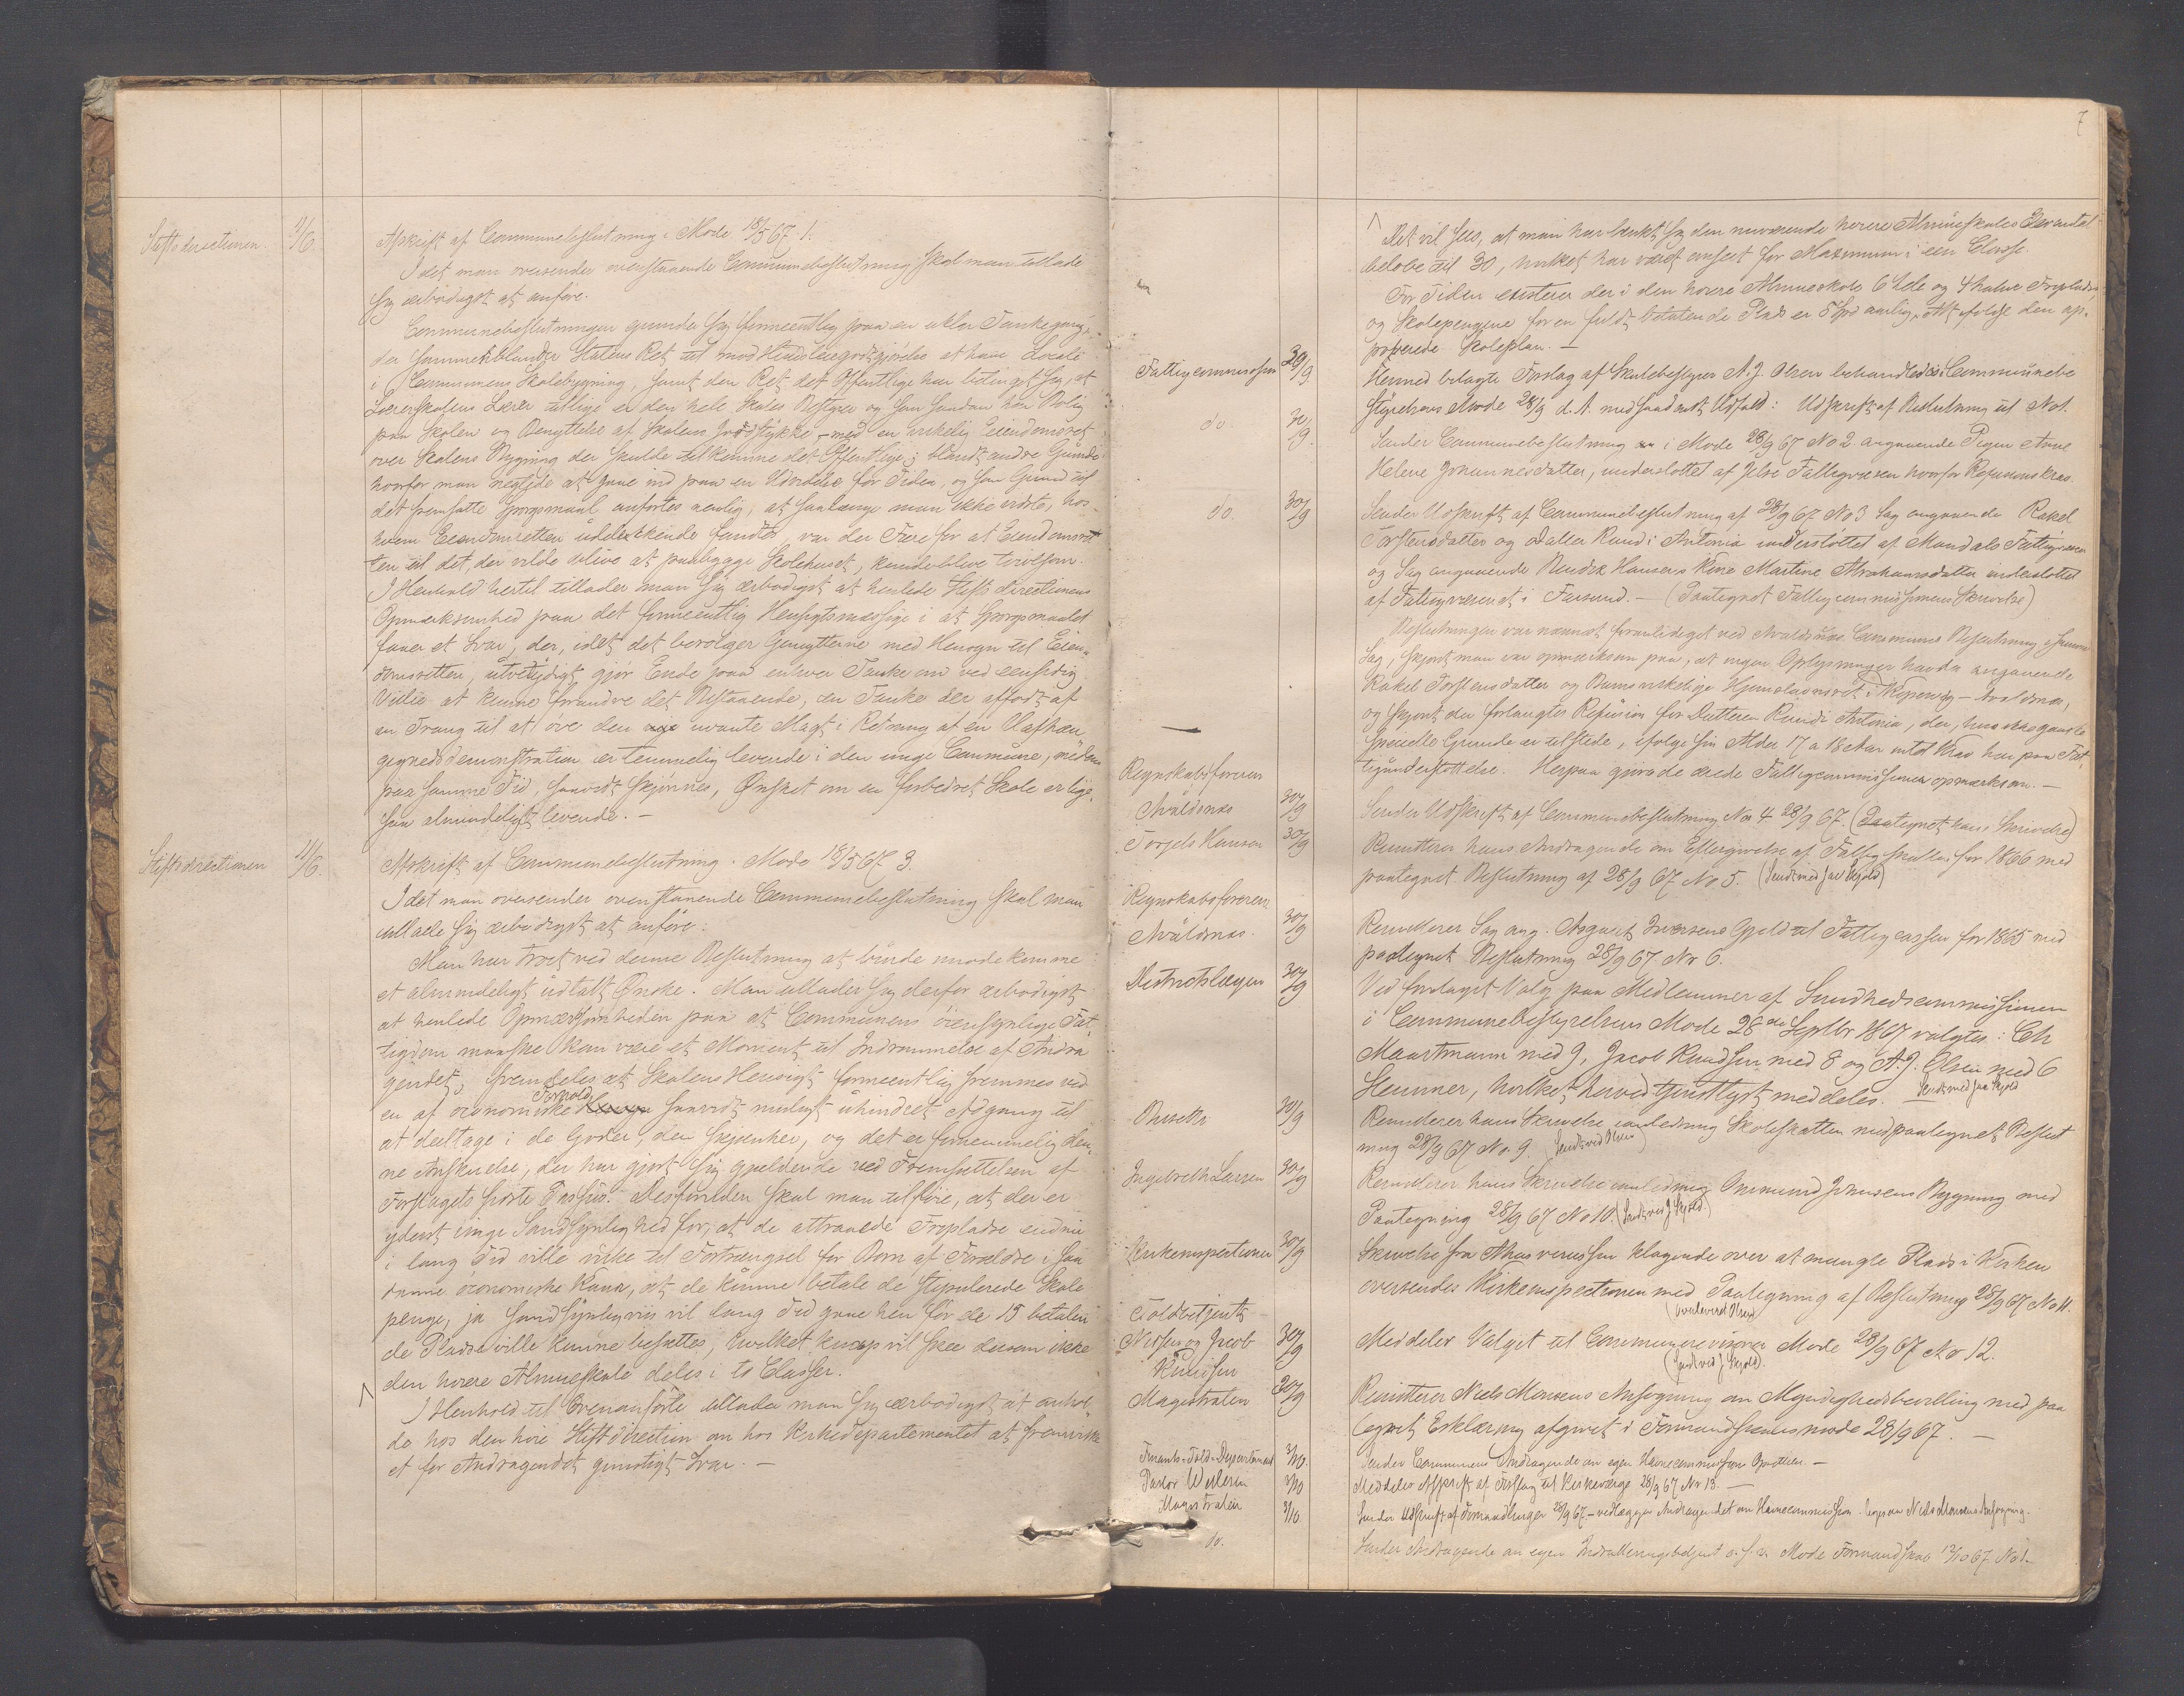 Stiftsdirectionen. 4/6. Afskrift af Communebeslutning i Møde 18/5 67. 1.
Idet man oversender ovenstaaende Communebeslutning skal man tillade
sig ærbødigst at anføre.
Communebeslutningen grunder sig formeentlig paa en uklar Tankegang,
der sammenblander Statens Ret til mod Huusleiegodtgjørelse at have Locale
i Communens Skolebygning, samt den Ret det Offentlige har betinget sig, at
Lærerskolens Lærer tillige er den hele Skoles Bestyrer og som saadan har Bolig
paa Skolen og Benyttelse af Skolens Jordstykke – med en virkelig Eiendomsret
over Skolens Bygning der skulde tilkomme det Offentlige; blandt andre Grunde
hvorfor man negtede at gaae ind paa en Udvidelse for Tiden, og som Grund til
det fremsatte Spørgsmaal anførtes nemlig, at saalænge man ikke vidste, hos
hvem Eiendomsretten udelukkende fandtes, var der Fare for at Eiendomsret
ten til det, der vilde blive at paabygge Skolehuset, kunde blive tvivlsom.
I Henhold hertil tillader man sig ærbødigst at henlede Stiftsdirectionens
Opmærksomhed paa det formeentlig Hensigtsmæssige i at Spørgsmaalet
faaer et Svar, der, idet det beroliger Gemytterne med Hensyn til Eien
domsretten, utvetydigt gjør Ende paa enhver Tanke om ved eensidig
Villie at kunne forandre det Bestaaende, en Tanke der affødt af
en Trang til at øve den uvante Magt i Retning af en Uafhæn
gighedsdemonstration er temmelig levende i den unge Commune, medens
paa samme Tid, saavidt skjønnes, Ønsket om en forbedret Skole er lige
saa almindeligt levende. –
Stiftsdirectionen 11/6. Afskrift af Communebeslutning i Møde 18/5 67. 3
Idet man oversender ovenstaaende Communebeslutning skal man
tillade sig ærbødigst at anføre:
Man har troet ved denne Beslutning at burde imødekomme
et almindeligt udtalt Ønske. Man tillader sig derfor ærbødigst
at henlede Opmærksomheden paa at Communens øiensynlige Fat
tigdom maaske kan være et Moment til Indrømmelse af Andra
gendet, fremdeles at Skolens Hensigt formeentlig fremmes ved
en af oeconomiske Forhold saavidt muligt uhindret Adgang til
at deeltage i de Goder, den skjænker, og det er fornemmelig den
ne Anskuelse, der har gjort sig gjældende ved Fremsættelsen af
Forslagets første Passus. Desforuden skal man tilføie, at der er
yderst ringe Sandsynlighed for, at de attraaede Fripladse endnu
i lang Tid ville virke til Fortrængsel for Børn af Forældre i saa
danne oeconomiske Kaar, at de kunne betale de stipulerede Skole
penge, ja sandsynligviis vil lang Tid gaae hen før de 15 betalen
de Pladse ville kunne besættes, hvilket knap vil skee dersom ikke
den høiere Almueskole deles i to Classer.
I Henhold til Ovenanførte tillader man sig ærbødigst at anhol
de hos den høie Stiftsdirection om hos Kirkedepartementet at fremvirke
et for Andragendet gunstigt Svar. –
7
Det vil sees, at man har tænkt sig den nuværende høiere Almueskoles Elevantal
beløbe til 30, hvilket har været anseet for Maximum i een Classe.
For Tiden existerer der i den høiere Almueskole 6 hele og 4 halve Fripladse,
og Skolepengene for en fuldt betalende Plads er 8 Spd aarlig. Alt ifølge den ap
proberede Skoleplan. –
Fattigcommissionen 30/9 Hermed belagte Forslag af Skolebestyrer A. J. Olsen behandledes i Communebe
styrelsens Møde 28/9 d. A. med saadant Udfald: Udskrift af Beslutning til No 1.
do. 30/9. Sender Communebeslutning i Møde 28/9 67 No 2 angaaende Pigen Anne
Helene Johannesdatter, understøttet af Jelse Fattigvæsen hvorfor Refusion kræs.
do. 30/9 Sender Udskrift af Communebeslutning af 28/9 67. No 3 Sag angaaende Rakel
Torstensdatter og Datter Randi Antonia understøttet af Mandals Fattigvæsen
og Sag angaaende Bendix Hansens Kone Martine Abrahamsdatter understøttet
af Fattigvæsenet i Farsund. – (Paategnet Fattigcommissionens Skrivelse)
Beslutningen var nærmest foranlediget ved Avaldsnæs Communes Beslutning i samme
Sag, skjønt man var opmærksom paa, at ingen Oplysninger havdes angaaende
Rakel Torstensdatter og Barns virkelige Hjemstavnsret i Kopervig – Avaldsnæs,
og skjønt der forlangtes Refusion for Datteren Randi Antonia, der, hvis ikke ganske
specielle Grunde er tilstede, ifølge sin Alder 17 a 18 Aar intet Krav har paa Fat
tigunderstøttelse. Herpaa gjøres de ærede Fattigcommissioner opmærksom. –
Regnskabsføreren
Avaldsnæs 30/9 Sender Udskrift af Communebeslutning No 4 28/9 67. (Paategnet hans Skrivelse)
Torjels Hansen 30/9 Remitterer hans Andragende om Eftergivelse af Fattigskatten for 1866 med
paategnet Beslutning af 28/9 67 No 5. (Sendt med Jac Skjold)
Regnskabsføreren
Avaldsnæs. 30/9 Remitterer Sag ang. Asgaut Iversens Gjeld til Fattigcassen for 1865 med
paategnet Beslutning 28/9 67 Nr 6.
Districtslægen 30/9 Ved foretaget Valg paa Medlemmer af Sundhedscommissionen
i Communebestyrelsens Møde 28de Septbr 1867 valgtes: Chr
Maartmann med 9, Jacob Knudsen med 8 og A. J. Olsen med 6
Stemmer, hvilket herved tjenstligst meddeles. Sendt med Jac Skjold
30/9 Remitterer hans Skrivelse anledning Skoleskatten med paategnet Beslut
ning 28/9 67 No. 9. (Sendt ved Olsen)
Ingebreth Larsen 30/9 Remitterer hans Skrivelse anledning Ommund Johnsens Bygning med
Paategning 28/9 67 No 10. (Sendt ved J. Skjold.)
Kirkeinspectionen 30/9 Skrivelse fra Ahasverussen klagende over at mangle Plads i Kirken
oversendes Kirkeinspectionen med Paategning af Beslutning 28/9 67 No 11.
(overleveret Olsen)
Toldbetjent
Nilsen og Jacob 30/9 Meddeler Valget til Communerevisorer Møde 28/9 67 No 12.
Knudsen (Sendt ved J. Skjold).
Magistraten 30/9 Remitterer Niels Monsens Ansøgning om Myndighedsbevilling med paa
tegnet Erklæring afgivet i Formandskabsmøde 28/9 67. –
Finants- & Told-Departementet 3/10. Sender Communens Andragende om egen Havnecommission. –
Pastor 3/10 Meddeles Afskrift af Forslag til Kirkeværge 28/9 67 Nr 13. –
Magistraten 3/10. Sender Udskrift af Forhandlinger 28/9 67. – vedlægger Andragendet om Havnecommission. Niels Monsens Ansøgning.
do. Sender Andragende om egen o. s. v. Møde Formandskab 12/10 67. No 1.